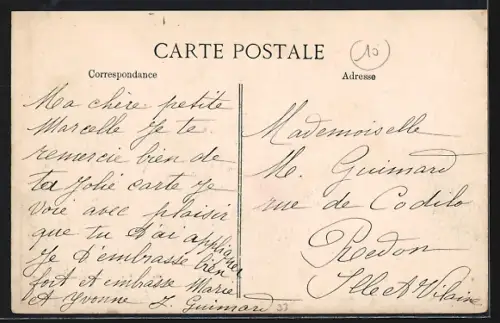 CARTE POSTALE
10
Correspondance
Adresse
Ma chère petite
Marcelle Je te
remercie bien de
ta Jolie carte Je
voie avec plaisir
que tu t'ai appliquer
Je t'embrasse bien
fort et embrasse Marie
et Yvonne J. Guimard
Mademoiselle
M. Guimard
rue de Codilo
Redon
Ille et Vilaine
33